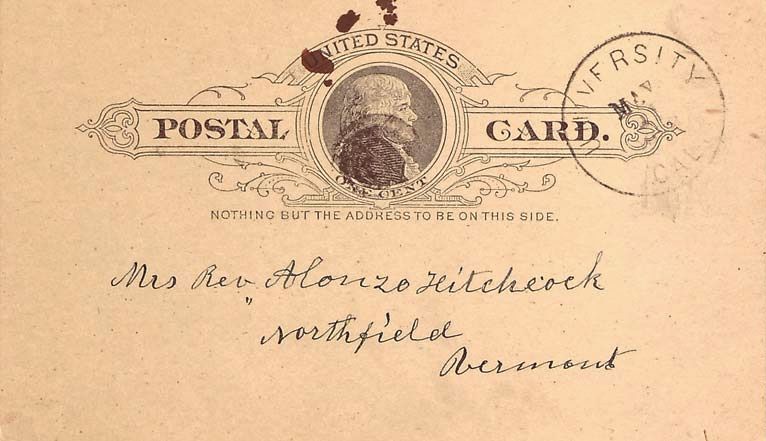 UNITED STATES
POSTAL CARD.
ONE CENT
NOTHING BUT THE ADDRESS TO BE ON THIS SIDE.
VERSITY
MAY
CAL
Mrs Rev Alonzo Hitchcock
" Northfield
Vermont